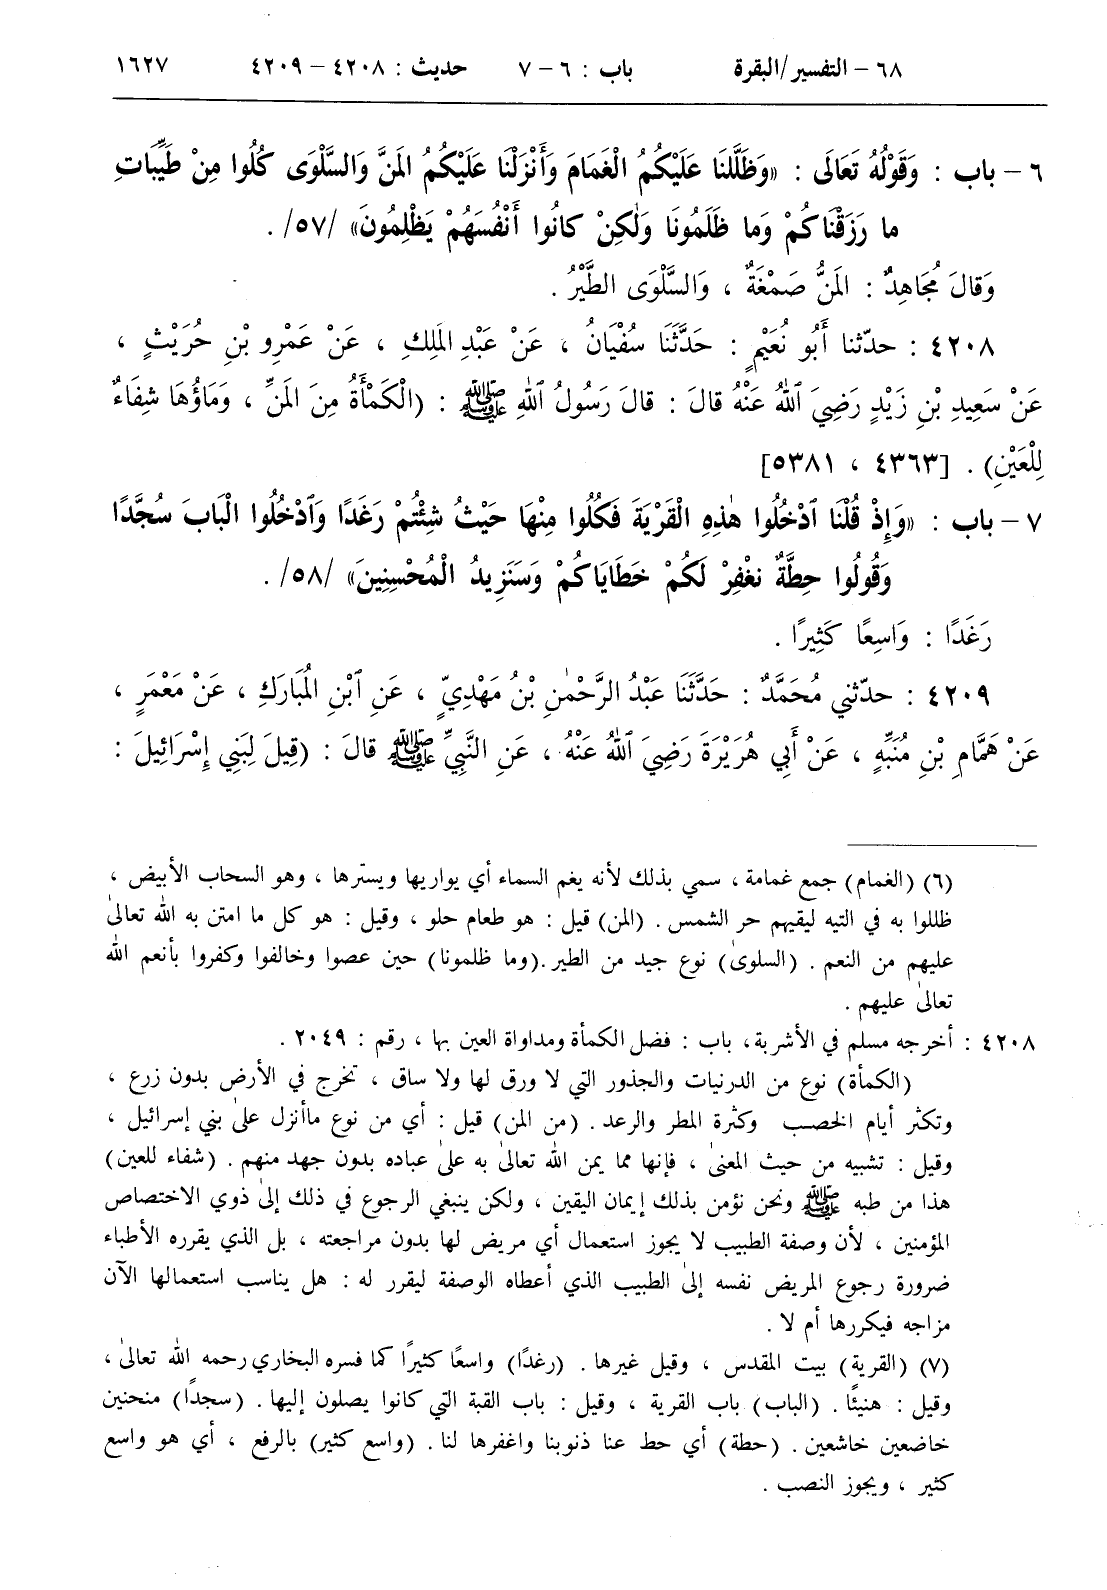 ٦٨ – التفسير/البقرة باب : ٦ – ٧ حديث : ٤٢٠٨ – ٤٢٠٩ ١٦٢٧
٦ – باب : وَقَوْلُهُ تَعَالَى : «وَظَلَّلنَا عَلَيْكُمُ الْغَمَامَ وَأَنْزَلْنَا عَلَيْكُمُ المَنَّ وَالسَّلْوَى كُلُوا مِنْ طَيِّبَاتِ
ما رَزَقْنَاكُمْ وَما ظَلَمُونَا وَلٰكِنْ كانُوا أَنْفُسَهُمْ يَظْلِمُونَ» /٥٧/ .
وَقالَ مُجَاهِدٌ : المَنُّ صَمْغَةٌ ، وَالسَّلْوَى الطَّيْرُ .
٤٢٠٨ : حدّثنا أَبُو نُعَيْمٍ : حَدَّثَنَا سُفْيَانُ ، عَنْ عَبْدِ المَلِكِ ، عَنْ عَمْرِو بْنِ حُرَيْثٍ ،
عَنْ سَعِيدِ بْنِ زَيْدٍ رَضِيَ ٱللهُ عَنْهُ قالَ : قالَ رَسُولُ ٱللهِ ﷺ : (الْكَمْأَةُ مِنَ المَنِّ ، وَمَاؤُهَا شِفَاءٌ
لِلْعَيْنِ) . [٤٣٦٣ ، ٥٣٨١]
٧ – باب : «وَإِذْ قُلْنَا ٱدْخُلُوا هٰذِهِ الْقَرْيَةَ فَكُلُوا مِنْهَا حَيْثُ شِئْتُمْ رَغَدًا وَٱدْخُلُوا الْبَابَ سُجَّدًا
وَقُولُوا حِطَّةٌ نغْفِرْ لَكُمْ خَطَايَاكُمْ وَسَنَزِيدُ الْمُحْسِنِينَ» /٥٨/ .
رَغَدًا : وَاسِعًا كَثِيرًا .
٤٢٠٩ : حدّثني مُحَمَّدٌ : حَدَّثَنَا عَبْدُ الرَّحْمٰنِ بْنُ مَهْدِيٍّ ، عَنِ ٱبْنِ المُبَارَكِ ، عَنْ مَعْمَرٍ ،
عَنْ هَمَّامِ بْنِ مُنَبِّهٍ ، عَنْ أَبِي هُرَيْرَةَ رَضِيَ ٱللهُ عَنْهُ ، عَنِ النَّبِيِّ ﷺ قالَ : (قِيلَ لِبَنِي إِسْرَائِيلَ :
(٦) (الغمام) جمع غمامة ، سمي بذلك لأنه يغم السماء أي يواريها ويسترها ، وهو السحاب الأبيض ،
ظللوا به في التيه ليقيهم حر الشمس . (المن) قيل : هو طعام حلو ، وقيل : هو كل ما امتن به الله تعالىٰ
عليهم من النعم . (السلوىٰ) نوع جيد من الطير .(وما ظلمونا) حين عصوا وخالفوا وكفروا بأنعم الله
تعالىٰ عليهم .
٤٢٠٨ : أخرجه مسلم في الأشربة، باب : فضل الكمأة ومداواة العين بها ، رقم : ٢٠٤٩ .
(الكمأة) نوع من الدرنيات والجذور التي لا ورق لها ولا ساق ، تخرج في الأرض بدون زرع ،
وتكثر أيام الخصب وكثرة المطر والرعد . (من المن) قيل : أي من نوع ماأنزل علىٰ بني إسرائيل ،
وقيل : تشبيه من حيث المعنىٰ ، فإنها مما يمن الله تعالىٰ به علىٰ عباده بدون جهد منهم . (شفاء للعين)
هذا من طبه ﷺ ونحن نؤمن بذلك إيمان اليقين ، ولكن ينبغي الرجوع في ذلك إلىٰ ذوي الاختصاص
المؤمنين ، لأن وصفة الطبيب لا يجوز استعمال أي مريض لها بدون مراجعته ، بل الذي يقرره الأطباء
ضرورة رجوع المريض نفسه إلىٰ الطبيب الذي أعطاه الوصفة ليقرر له : هل يناسب استعمالها الآن
مزاجه فيكررها أم لا .
(٧) (القرية) بيت المقدس ، وقيل غيرها . (رغدًا) واسعًا كثيرًا كما فسره البخاري رحمه الله تعالىٰ ،
وقيل : هنيئًا . (الباب) باب القرية ، وقيل : باب القبة التي كانوا يصلون إليها . (سجدًا) منحنين
خاضعين خاشعين . (حطة) أي حط عنا ذنوبنا واغفرها لنا . (واسع كثير) بالرفع ، أي هو واسع
كثير ، ويجوز النصب .